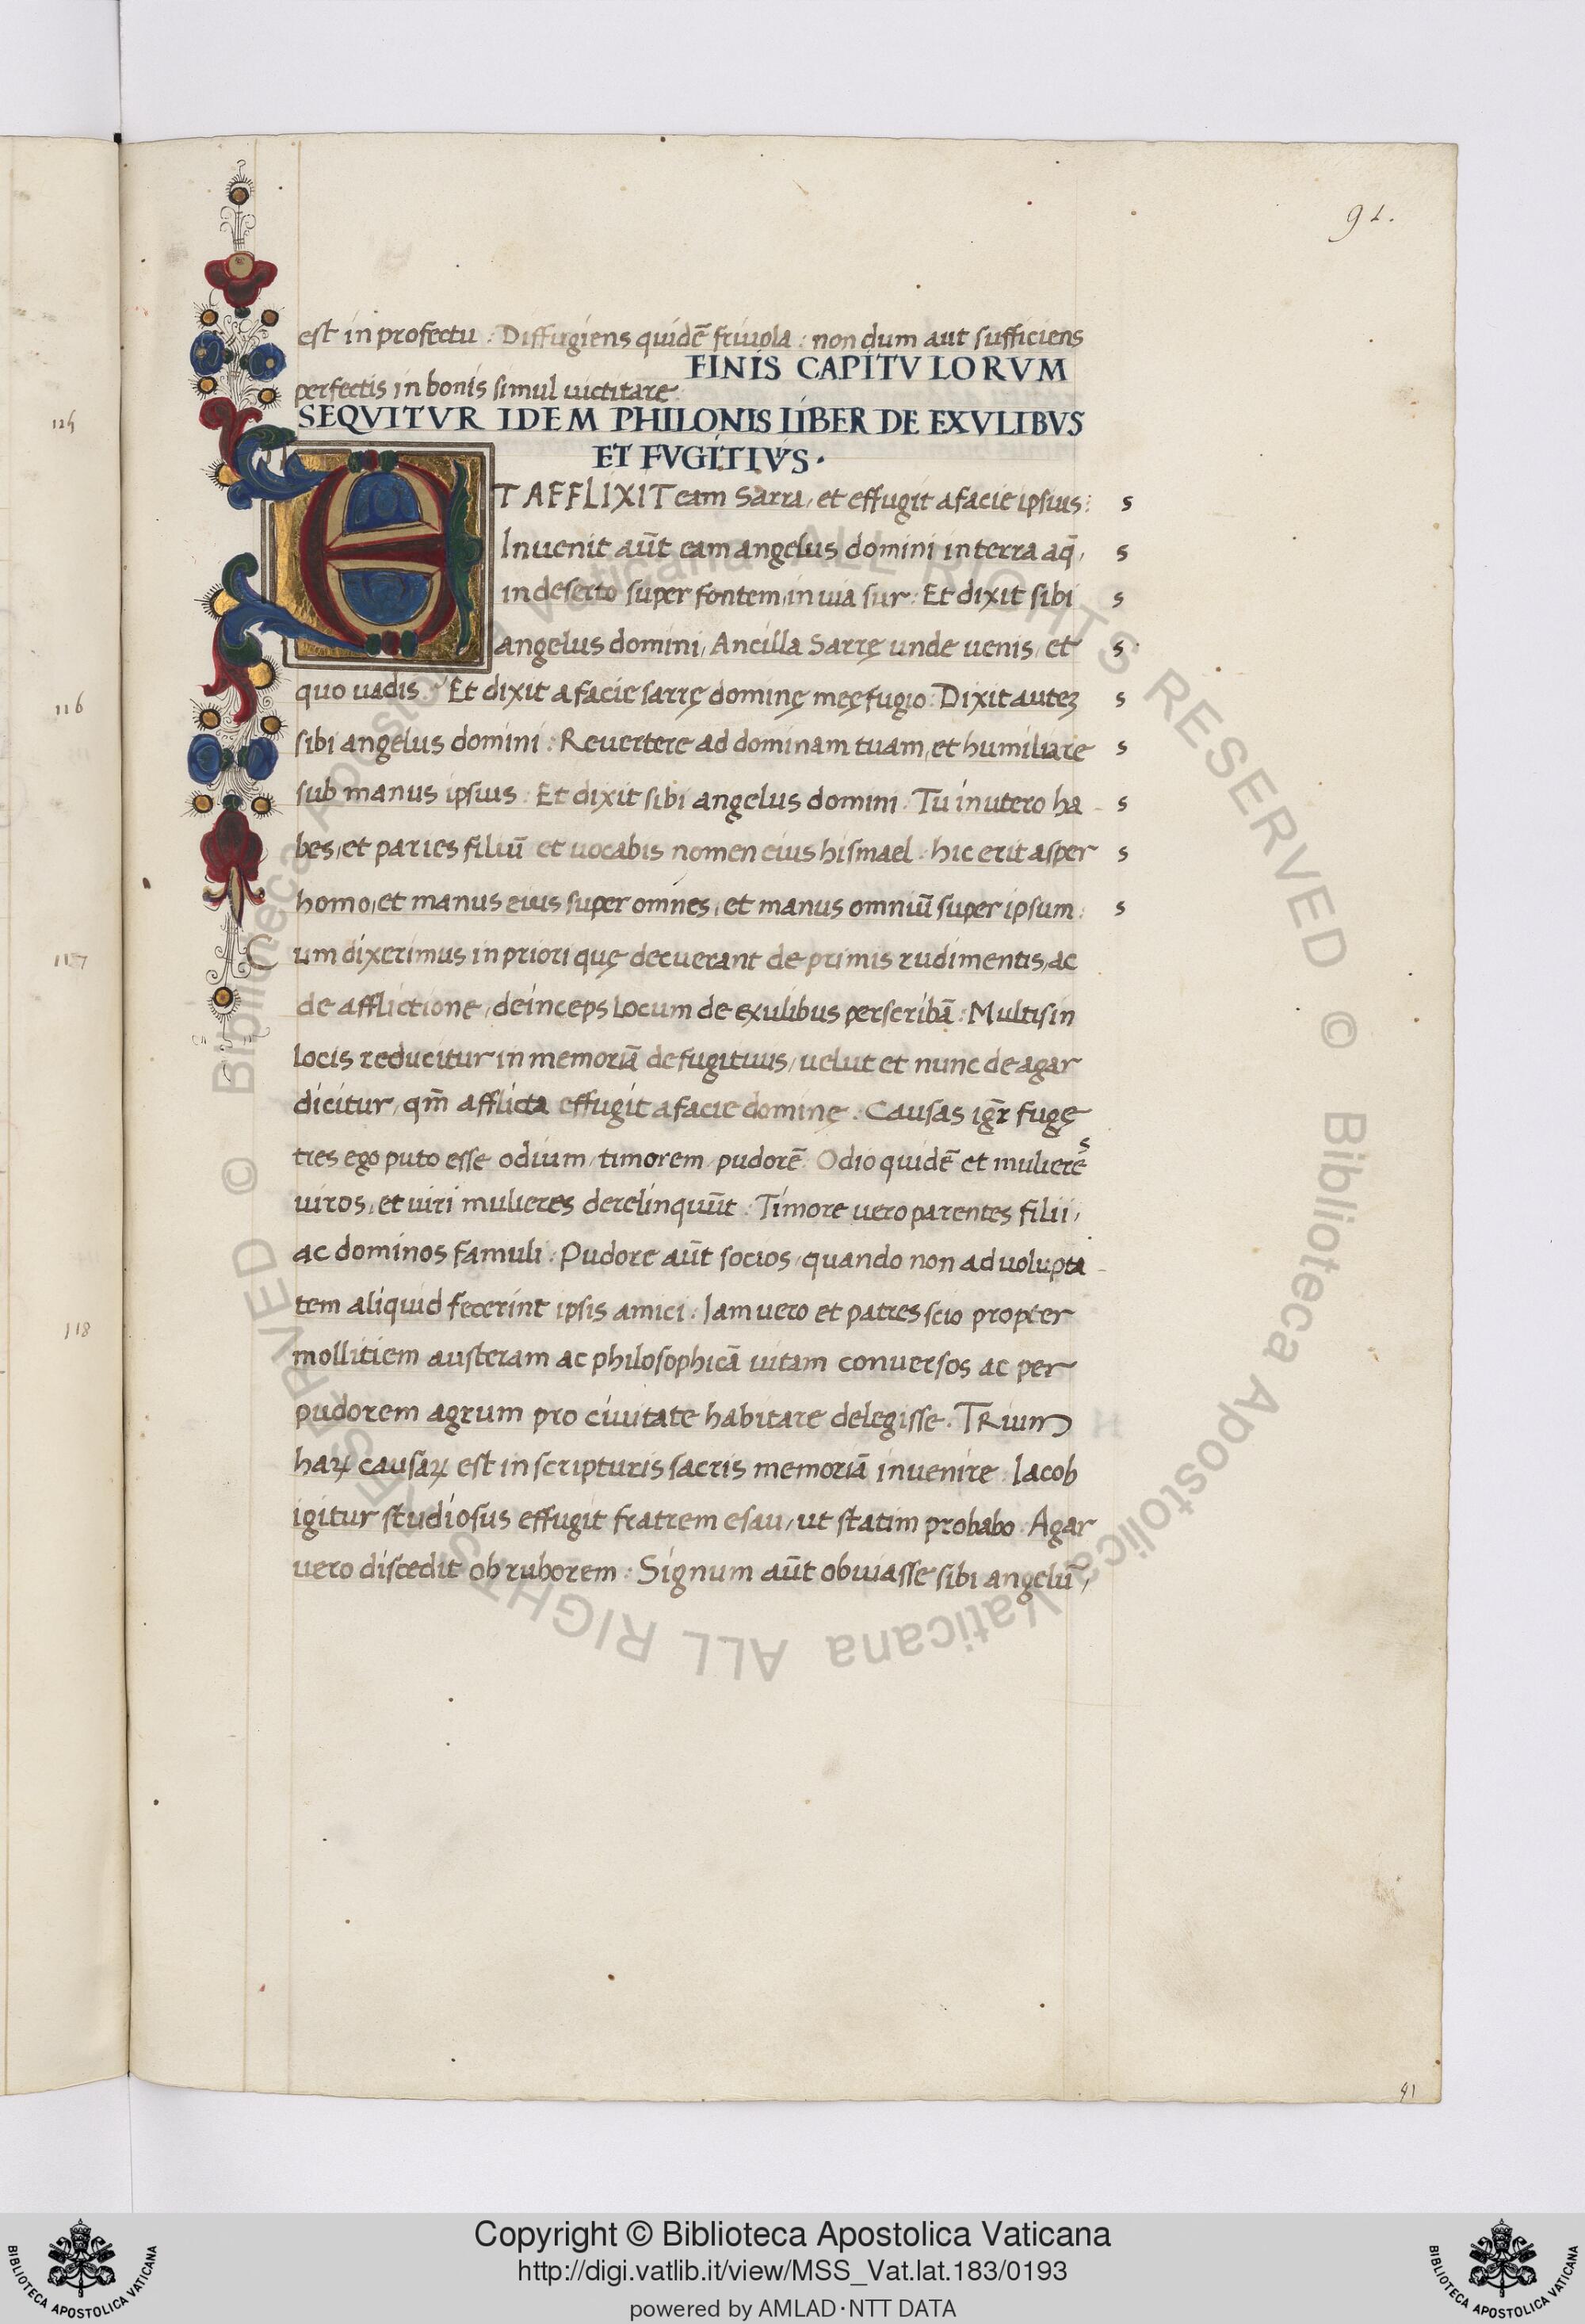 91.
est in profectu : Diffugiens quidē friuola : non dum aut sufficiens
FINIS CAPITVLORVM
perfectis in bonis simul uictitare :
SEQVITVR IDEM PHILONIS LIBER DE EXVLIBVS
ET FVGITIVIS ·
ET AFFLIXIT eam Sarra, et effugit a facie ipsius : s
Inuenit aūt eam angelus domini in terra aq̄, s
in deserto super fontem, in uia sur : Et dixit sibi s
angelus domini, Ancilla Sarrę unde uenis, et s
quo uadis : Et dixit a facie sarrę dominę meę fugio : Dixit auteʒ s
sibi angelus domini : Reuertere ad dominam tuam, et humiliare s
sub manus ipsius : Et dixit sibi angelus domini : Tu in utero ha- s
bes, et paries filiū et uocabis nomen eius hismael : hic erit asper s
homo, et manus eius super omnes, et manus omniū super ipsum : s
Cum dixerimus in priori quę decuerant de primis rudimentis, ac
de afflictione, deinceps locum de exulibus perscribā : Multis in
locis reducitur in memoriā de fugitiuis, uelut et nunc de agar
dicitur, qm̄ afflicta effugit a facie dominę . Causas igr̄ fugę
tres ego puto esse odium, timorem, pudorē : Odio quidē et mulieres
uiros, et uiri mulieres derelinquūt : Timore uero parentes filii,
ac dominos famuli : Pudore aūt socios, quando non ad uolupta-
tem aliquid fecerint ipsis amici : Iam uero et patres scio propter
mollitiem austeram ac philosophicā uitam conuersos ac per
pudorem agrum pro ciuitate habitare delegisse . TRium
haꝝ causaꝝ est in scripturis sacris memoriā inuenire : Iacob
igitur studiosus effugit fratrem esau, ut statim probabo : Agar
uero discedit ob ruborem : Signum aūt obuiasse sibi angelū,
116
117
118
91
© Biblioteca Apostolica Vaticana ALL RIGHTS RESERVED © Biblioteca Apostolica Vaticana ALL RIGHTS RESERVED
Copyright © Biblioteca Apostolica Vaticana
http://digi.vatlib.it/view/MSS_Vat.lat.183/0193
powered by AMLAD·NTT DATA
BIBLIOTECA APOSTOLICA VATICANA
BIBLIOTECA APOSTOLICA VATICANA